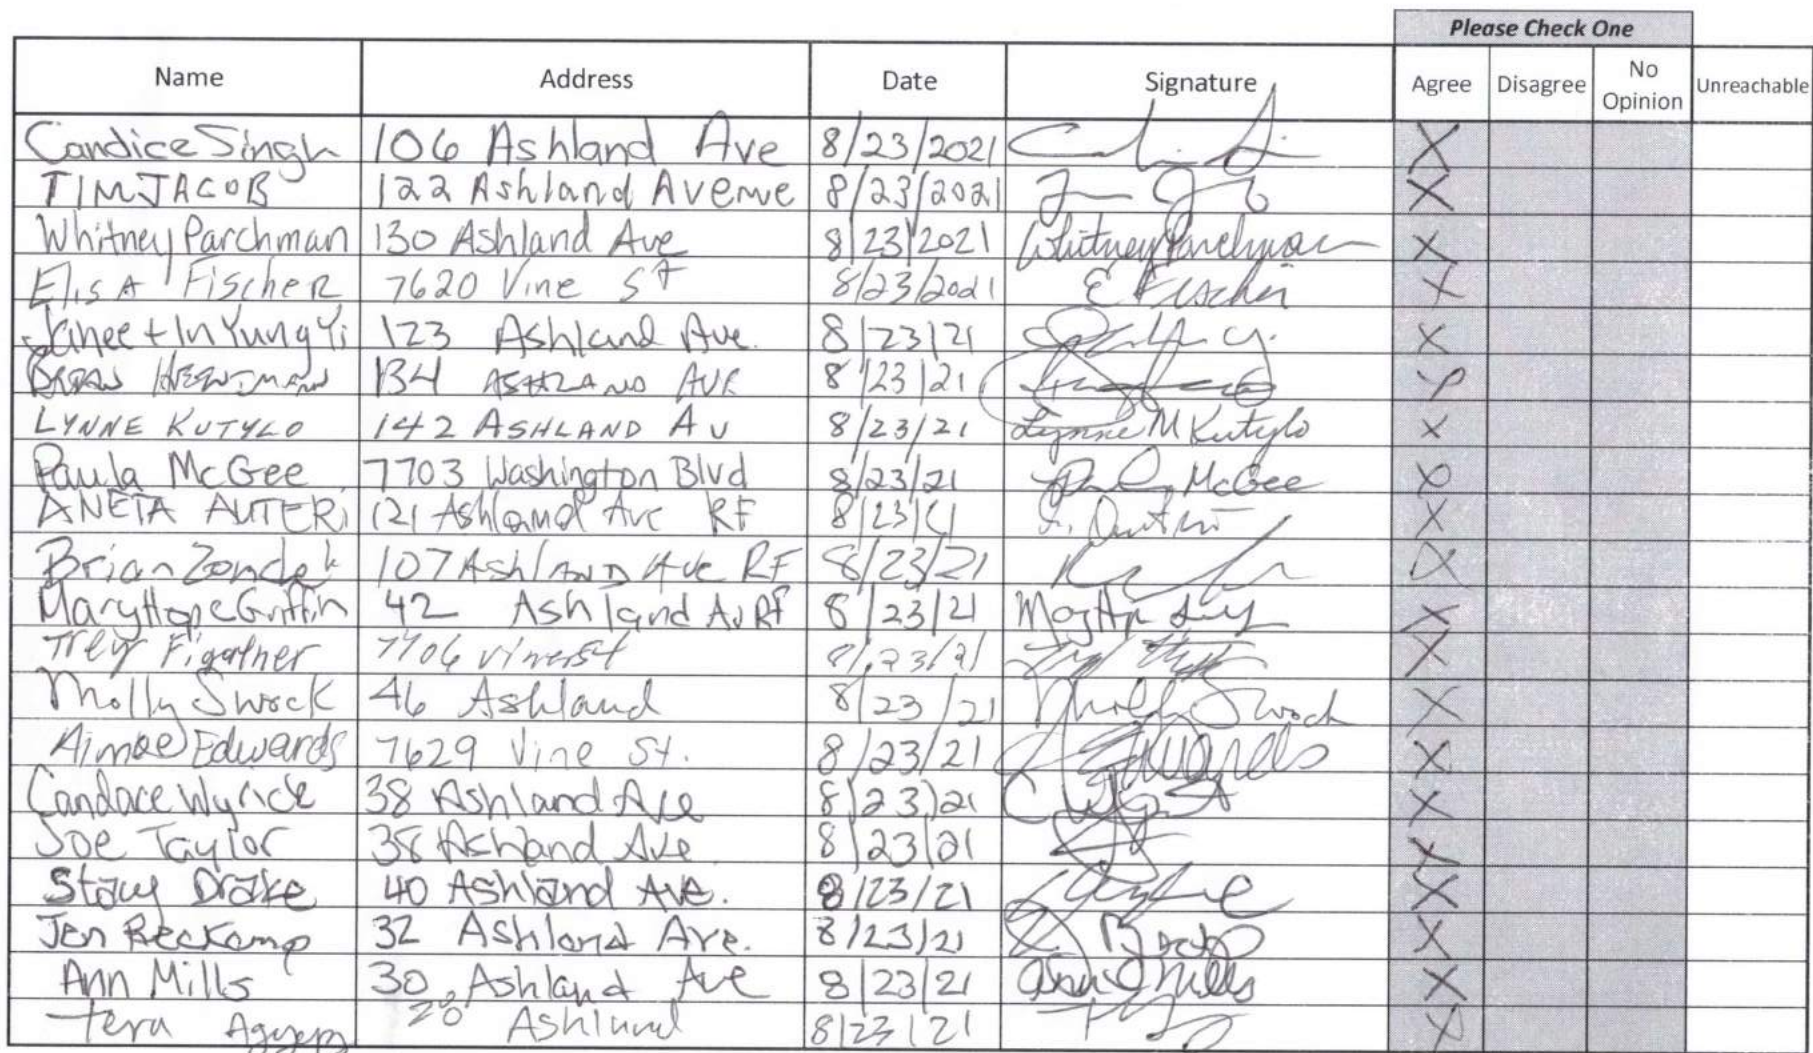 Please Check One
Name Address Date Signature Agree Disagree No Opinion Unreachable
Candice Singh 106 Ashland Ave 8/23/2021 X
TIM JACOB 122 Ashland Avenue 8/23/2021 X
Whitney Parchman 130 Ashland Ave 8/23/2021 Whitney Parchman X
Elisa Fischer 7620 Vine St 8/23/2021 E Fischer X
Janee + In Yung Yi 123 Ashland Ave. 8/23/21 X
134 ASHLAND AVE 8/23/21 X
LYNNE KUTYLO 142 ASHLAND AV 8/23/21 Lynne M Kutylo X
Paula McGee 7703 Washington Blvd 8/23/21 McGee X
ANETA AUTERI 121 Ashland Ave RF 8/23/21 A. Auteri X
Brian Zondek 107 Ashland Ave RF 8/23/21 X
Mary Hope Griffin 42 Ashland Av RF 8/23/21 X
7706 Vine St 8/23/21 X
Molly Swock 46 Ashland 8/23/21 Molly Swock X
Aimee Edwards 7629 Vine St. 8/23/21 Edwards X
Candace Wyrick 38 Ashland Ave 8/23/21 X
Joe Taylor 38 Ashland Ave 8/23/21 X
Stacy Drake 40 Ashland Ave. 8/23/21 X
Jen Beckamp 32 Ashland Ave. 8/23/21 X
Ann Mills 30 Ashland Ave 8/23/21 Ann Mills X
Tera 20 Ashland 8/23/21 X